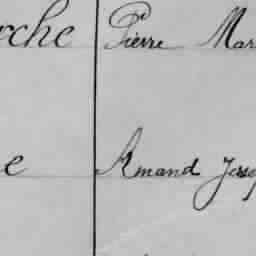 rche Pierre Mar
e Amand Josep